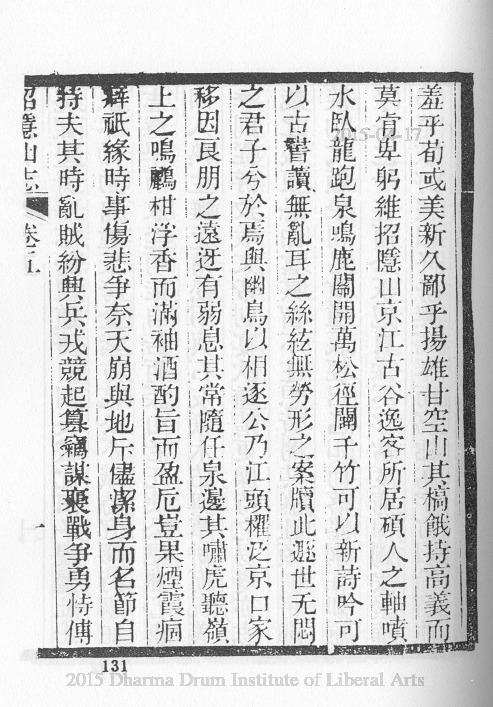 羞乎荀或美新久鄙乎揚雄甘空山其槁餓持高義而
莫肯卑躬維招隱山京江古谷逸客所居碩人之軸噴
水臥龍跑泉鳴鹿關開萬松徑闢千竹可以新詩吟可
以古書讀無亂耳之絲絃無勞形之案牘此遯世无悶
之君子兮於焉與幽鳥以相逐公乃江頭櫂泛京口家
移因良朋之遠迓有弱息其常隨任泉邊其嘯虎聽嶺
上之鳴鸝柑浮香而滿袖酒酌旨而盈卮豈果煙霞痼
癖祇緣時事傷悲爭奈天崩與地斥儘潔身而名節自
持夫其時亂賊紛興兵戎競起篡竊謀喪戰爭勇恃傅
招隱山志 卷之五
一
131
2015 Dharma Drum Institute of Liberal Arts